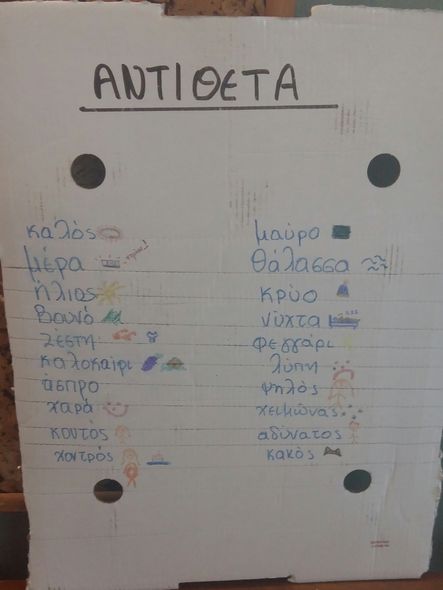 ΑΝΤΙΘΕΤΑ
καλός
μέρα
ήλιος
βουνό
ζέστη
καλοκαίρι
άσπρο
χαρά
κοντός
χοντρός
μαύρο
θάλασσα
κρύο
νύχτα
φεγγάρι
λύπη
ψηλός
χειμώνας
αδύνατος
κακός